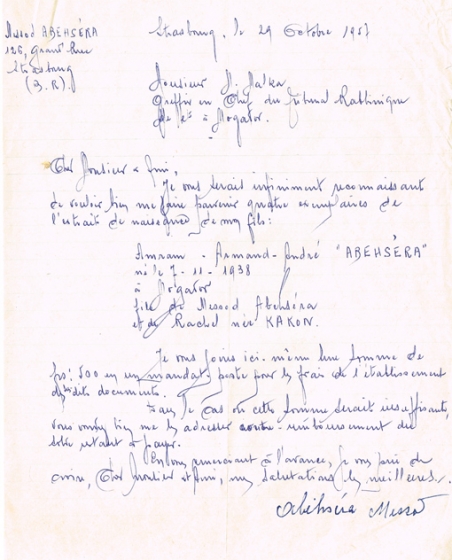 Messod ABEHSÉRA
126, Grand'Rue
Strasbourg
(B.R).
Strasbourg, le 29 Octobre 1957
Monsieur M. Malka
Greffier en Chef du Tribunal Rabbinique
à Mogador.
Cher Monsieur & Ami,
Je vous serais infiniment reconnaissant
de vouloir bien me faire parvenir quatre exemplaires de
l'extrait de naissance de mon fils:
Amram - Armand-André "ABEHSÉRA"
né le 7-11-1938
à Mogador
fils de Messod Abehséra
et de Rachel née KAKON.
Je vous joins ici-même une somme de
500 en un mandat-poste pour les frais de l'établissement
documents.
Dans le cas où cette somme serait insuffisante,
vous voudrez bien me les adresser contre-remboursement du
solde restant à payer.
En vous remerciant à l'avance, je vous prie de
croire, Cher Monsieur et Ami, mes salutations les meilleures.
Abehséra Messod